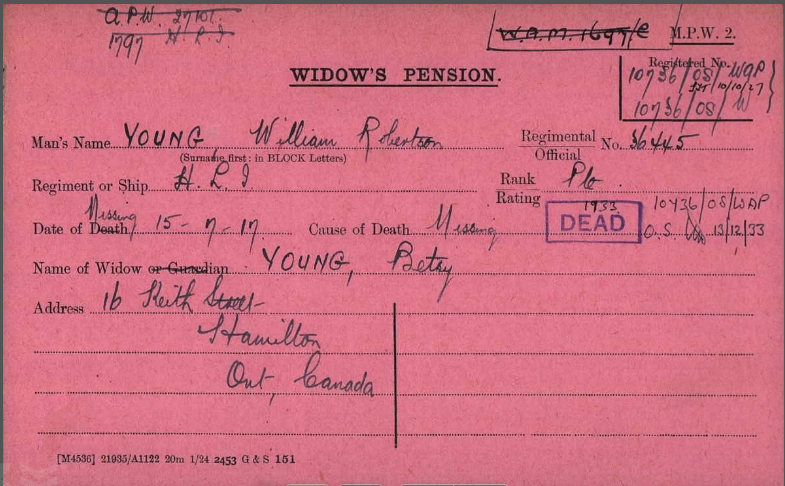 A.P.W. 27101
1797 H. L. I.
W.A.M. 1697/C
M.P.W. 2.
WIDOW'S PENSION.
Registered No.
10736/OS/WAP
10/10/27
10736/OS/W
Man's Name YOUNG William Robertson
(Surname first: in BLOCK Letters)
Regimental
Official No. 36445
Regiment or Ship H. L. I.
Rank
Rating Pte
Missing
Date of Death 15-7-17 Cause of Death Missing
1933
DEAD
10736/OS/WAP
O.S. 13/12/33
Name of Widow or Guardian YOUNG, Betsy
Address 16 Keith Street
Hamilton
Ont, Canada
[M4536] 21935/A1122 20m 1/24 2453 G & S 151